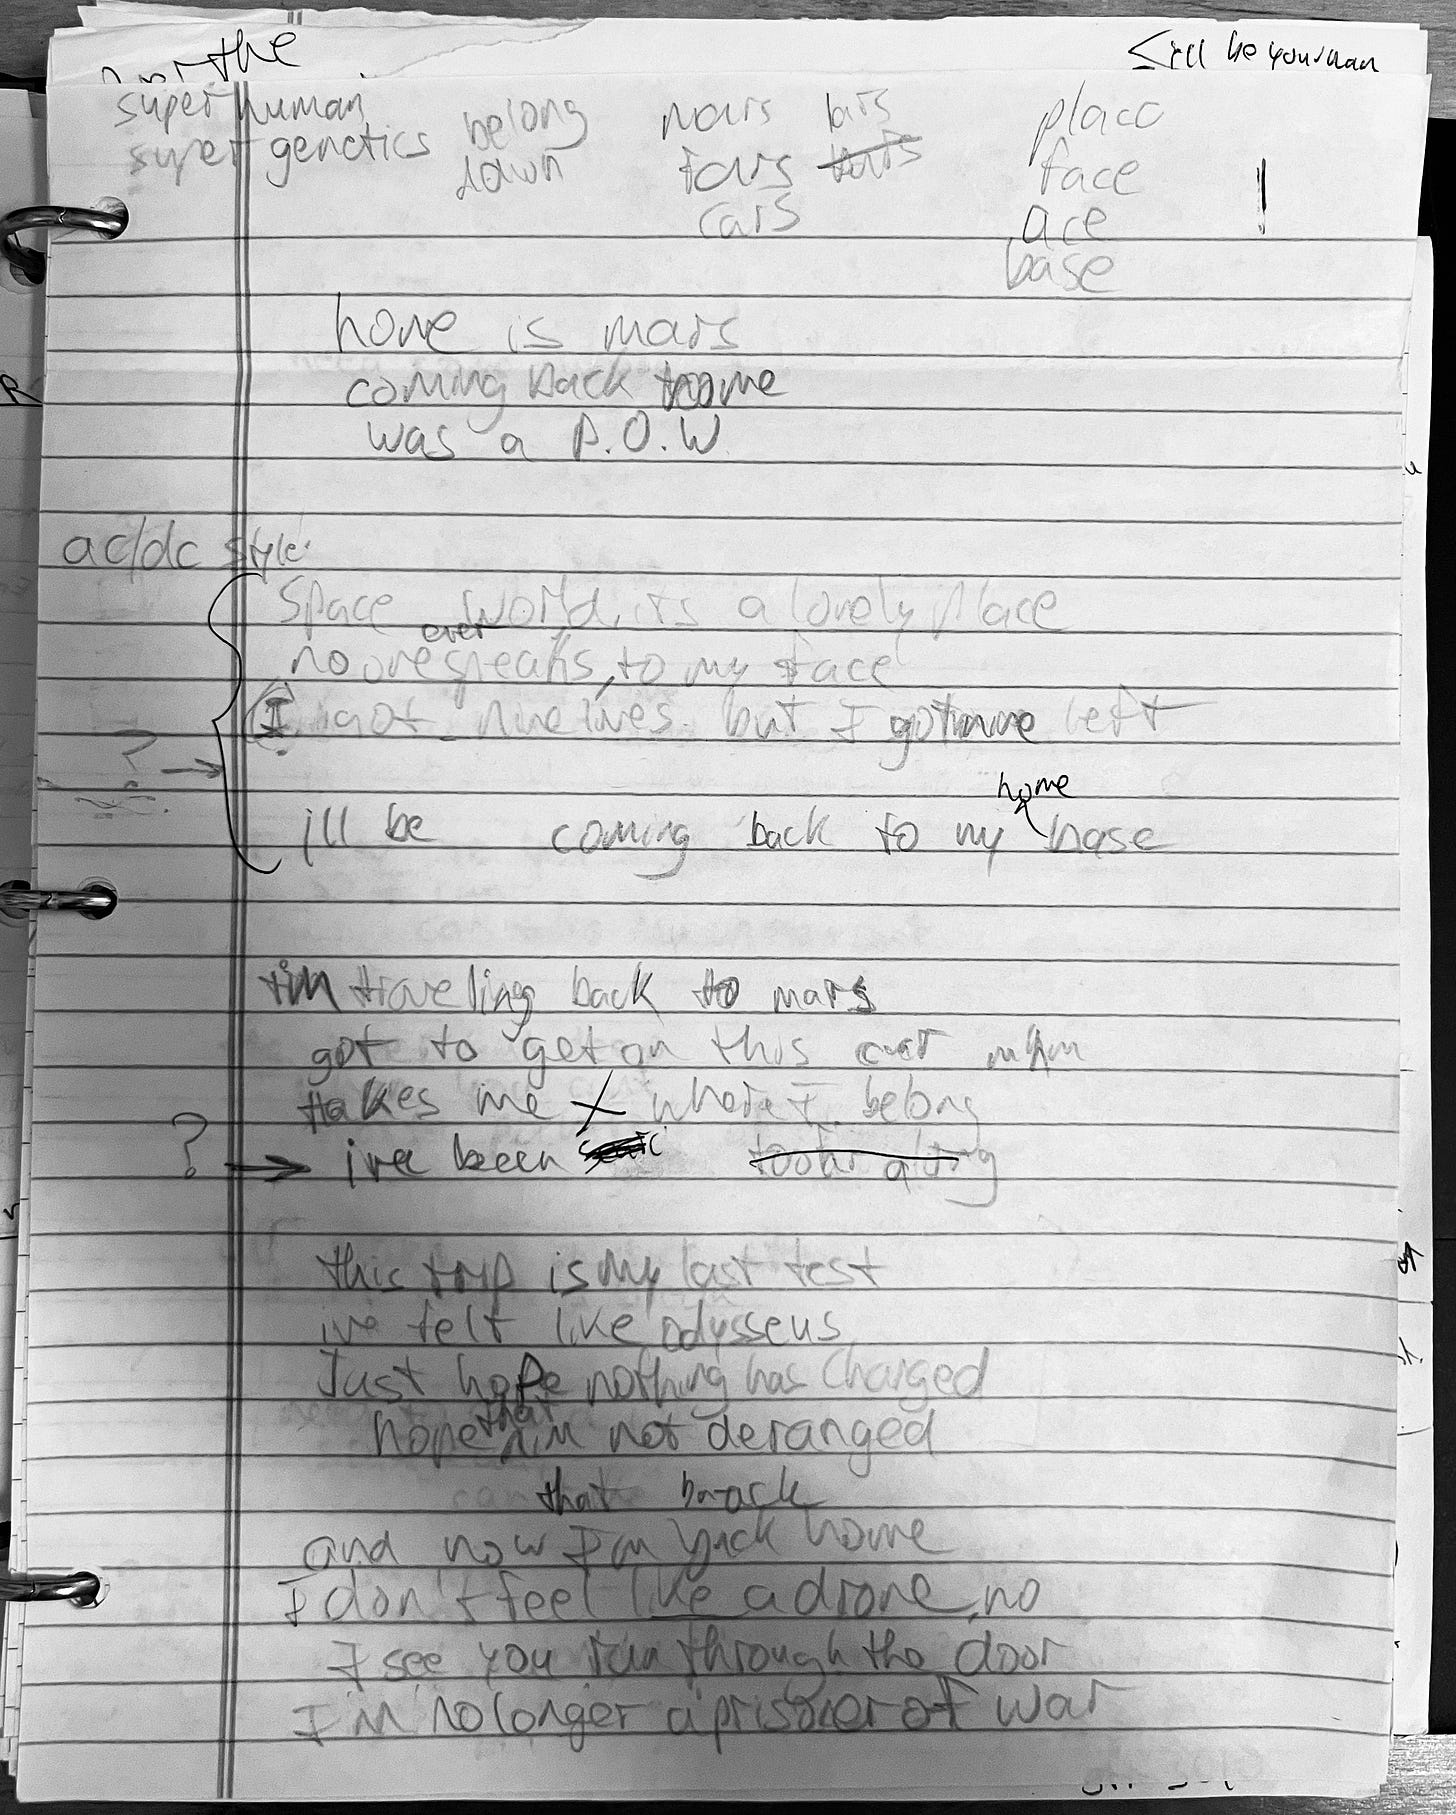 the
still be your man
super human
super genetics
belong
down
mars bars
cars
place
face
ace
base
home is mars
coming back home
was a P.O.W.
ac/dc style:
Space world, its a lovely place
no one ever speaks, to my face
I got nine lives but I got left
ill be coming back to my home base
im traveling back to mars
got to get on this
takes me where I belong
ive been took along
this trip is my last test
ive felt like odysseus
Just hope nothing has changed
hope that im not deranged
that back
and now I'm back home
I don't feel like a drone, no
I see you run through the door
I'm no longer a prisoner of war